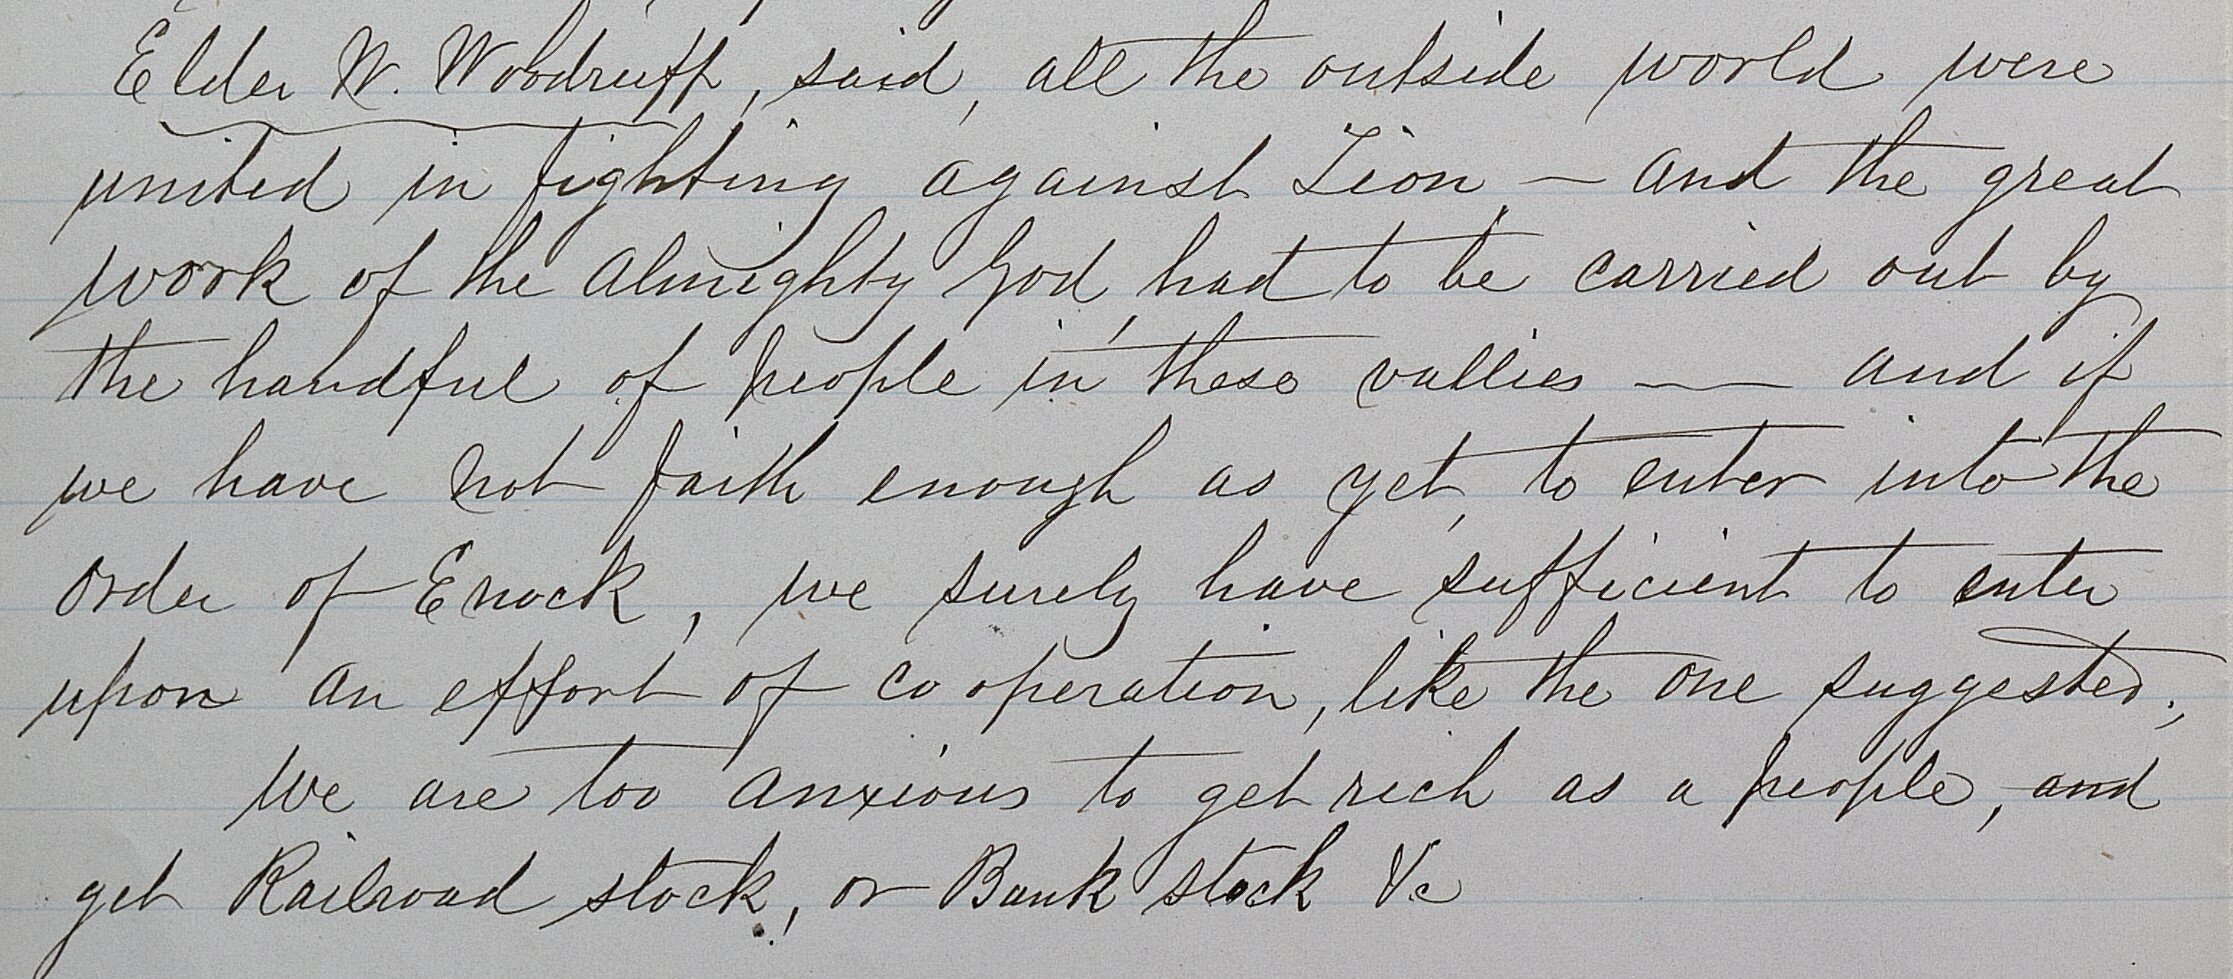 Elder W. Woodruff, said, all the outside world were
united in fighting against Zion, — and the great
work of the Almighty God, had to be carried out by
the handful of people in these vallies —— and if
we have not faith enough as yet, to enter into the
order of Enock, we surely have sufficient to enter
upon an effort of co operation, like the one suggested.,
We are too anxious to get rich as a people, and
get Railroad stock, or Bank stock &c